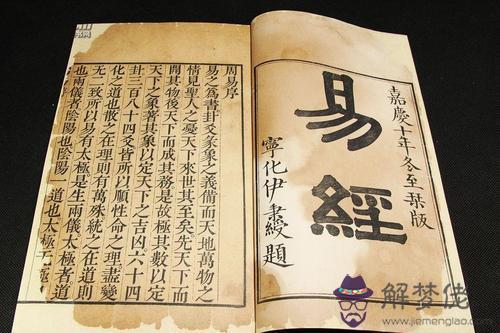 嘉慶十年冬至栞版
易經
寧化伊秉綬題
周易序
易之爲書卦爻彖象之義備而天地萬物之
情見聖人之憂天下來世其至矣先天下而
開其物後天下而成其務是故極其數以定
天下之象著其象以定天下之吉凶六十四
卦三百八十四爻皆所以順性命之理盡變
化之道也散之在理則有萬殊統之在道則
无二致所以易有太極是生兩儀太極者道
也兩儀者陰陽也陰陽一道也太極无極
解梦佬
http://jiemenglao.com/